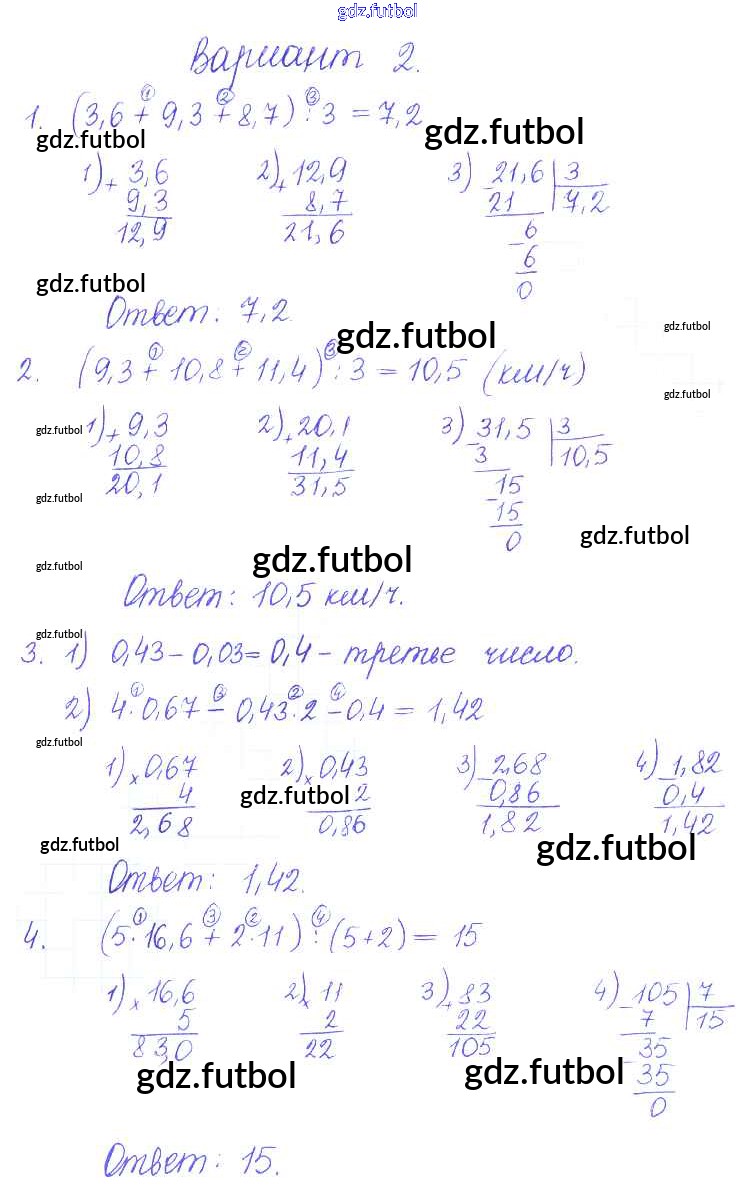 gdz.futbol
Вариант 2.
1. (3,6 + 9,3 + 8,7) : 3 = 7,2
① ② ③
gdz.futbol gdz.futbol
1) + 3,6 2) + 12,9 3) - 21,6 | 3
9,3 8,7 21 7,2
12,9 21,6 - 6
6
0
gdz.futbol
Ответ: 7,2.
gdz.futbol gdz.futbol
2. (9,3 + 10,8 + 11,4) : 3 = 10,5 (км/ч)
① ② ③
gdz.futbol
gdz.futbol 1) + 9,3 2) + 20,1 3) - 31,5 | 3
10,8 11,4 3 10,5
20,1 31,5 - 15
gdz.futbol 15
0
gdz.futbol
gdz.futbol gdz.futbol
Ответ: 10,5 км/ч.
gdz.futbol
3. 1) 0,43 - 0,03 = 0,4 - третье число.
2) 4 · 0,67 - 0,43 · 2 - 0,4 = 1,42
① ③ ② ④
gdz.futbol
1) × 0,67 2) × 0,43 3) - 2,68 4) - 1,82
4 2 0,86 0,4
2,68 0,86 1,82 1,42
gdz.futbol
gdz.futbol gdz.futbol
Ответ: 1,42.
4. (5 · 16,6 + 2 · 11) : (5+2) = 15
① ③ ② ④
1) × 16,6 2) × 11 3) + 83 4) - 105 | 7
5 2 22 7 15
83,0 22 105 - 35
35
0
gdz.futbol gdz.futbol
Ответ: 15.